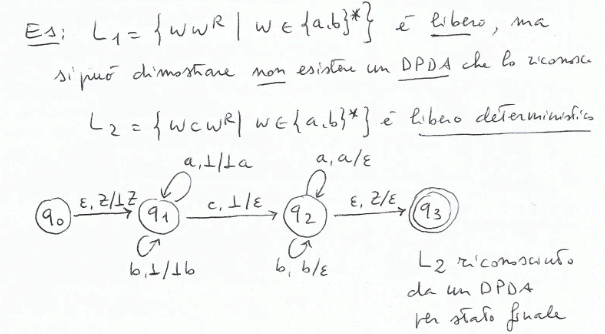 Es: L1 = {ww^R | w ∈ {a,b}*} é libero, ma
si può dimostrare non esistere un DPDA che lo riconosca
L2 = {wcw^R | w ∈ {a,b}*} é libero deterministico
a,⊥/⊥a a,a/ε
q0 ε,Z/⊥Z q1 c,⊥/ε q2 ε,Z/ε q3
b,⊥/⊥b b,b/ε
L2 riconosciuto
da un DPDA
per stato finale